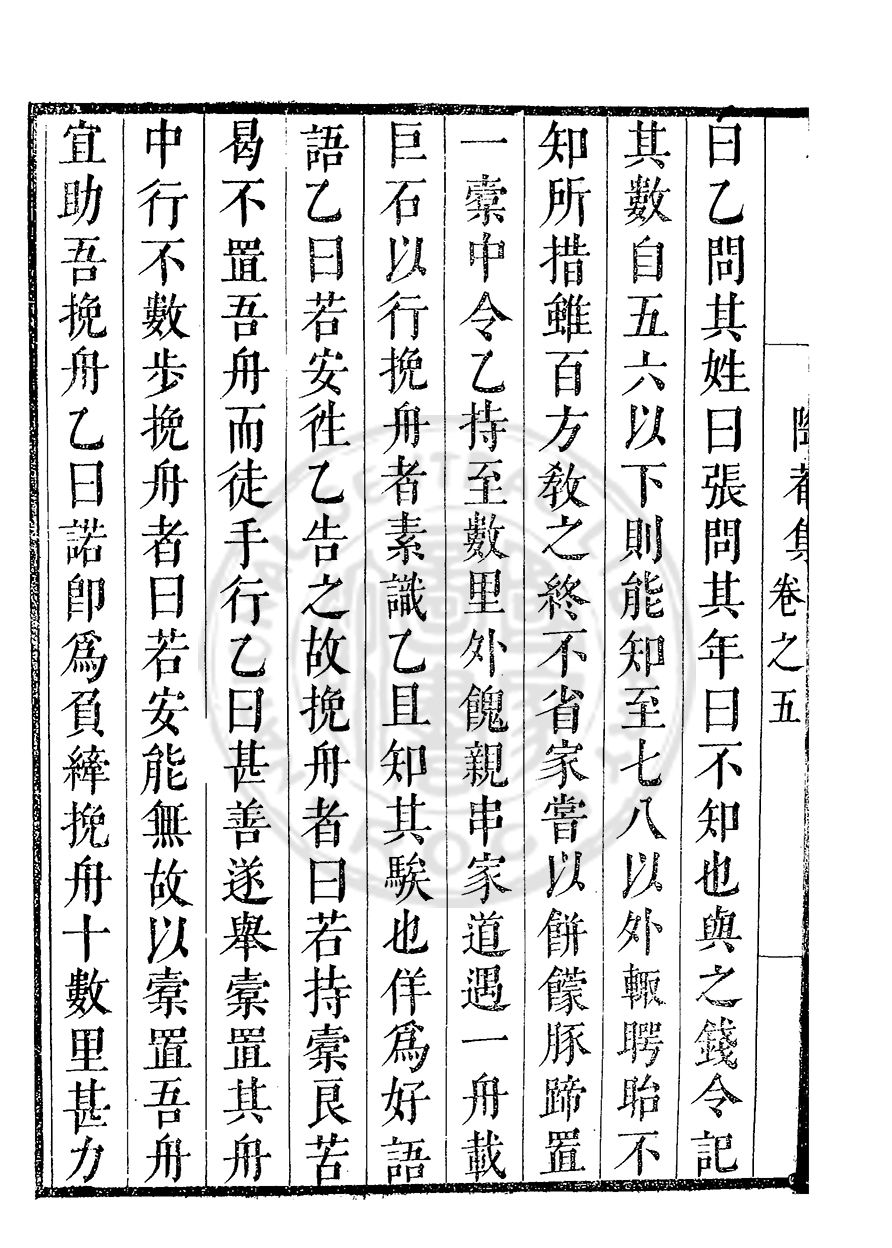 集卷之五
曰乙問其姓曰張問其年曰不知也與之錢令記
其數自五六以下則能知至七八以外輙聘眙不
知所措雖百方敎之終不省家嘗以餅饛豚蹄置
一橐中令乙持至數里外餽親串家道遇一舟載
巨石以行挽舟者素識乙且知其騃也佯爲好語
語乙曰若安徃乙告之故挽舟者曰若持橐良苦
曷不置吾舟而徒手行乙曰甚善遂舉橐置其舟
中行不數步挽舟者曰若安能無故以橐置吾舟
宜助吾挽舟乙曰諾卽爲負縴挽舟十數里甚力